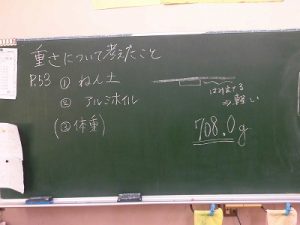 重さについて考えたこと
P.53 ① ねん土
② アルミホイル
(③ 体重)
はみ出てる
⇒ 軽い
708.0g